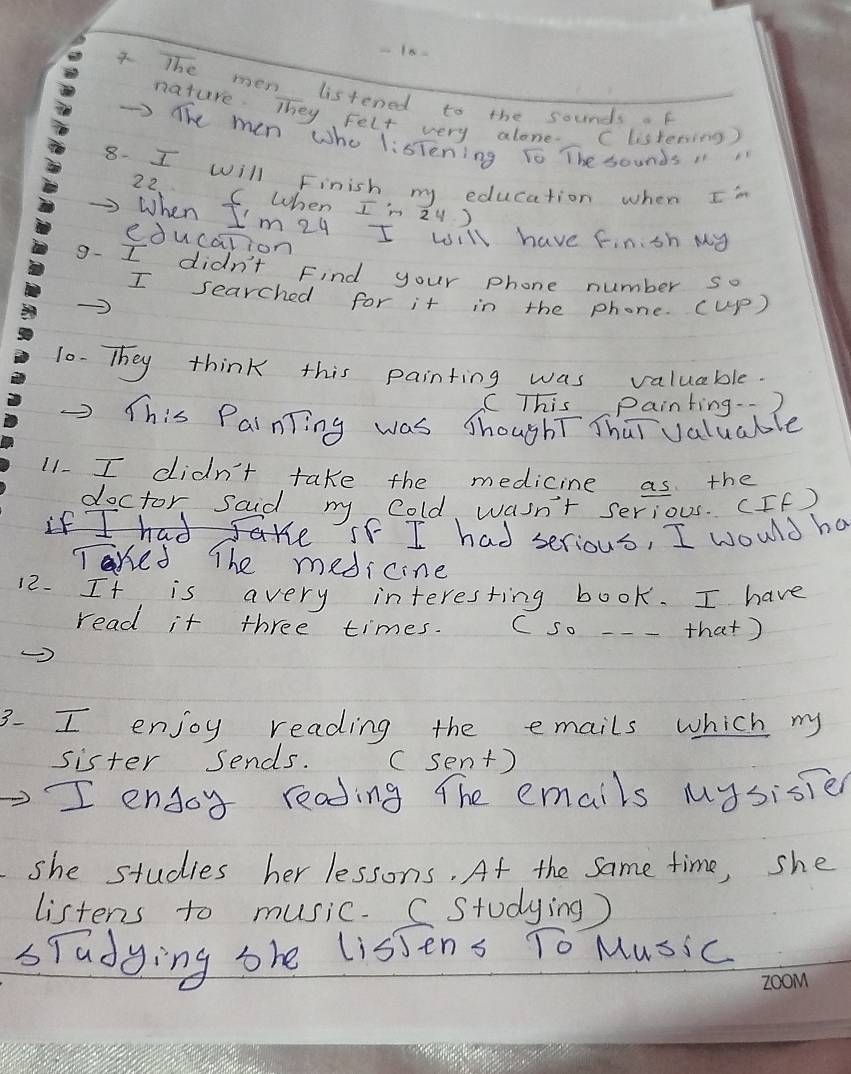 - 18 -
7 The men listened to the sounds of
nature. They Felt very alone. (listening)
→ The men who listening To The sounds " "
8- I will Finish my education when I'm
22. (When I'm 24)
→ When I'm 24 I will have finish My
education
9- I didn't Find your phone number so
I searched for it in the phone. (up)
→
10- They think this painting was valuable.
(This painting--)
→ This PainTing was ThoughT ThaT Valuable
11- I didn't take the medicine as the
doctor said my cold wasn't serious. (If)
if I had Take if I had serious, I would ha
Taked The medicine
12- It is avery interesting book. I have
read it three times. (so --- that)
→
3- I enjoy reading the emails which my
sister sends. (sent)
→ I enjoy reading The emails MysisTer
- she studies her lessons. At the same time, she
listens to music. (Studying)
sTudying she lisTens To Music
ZOOM